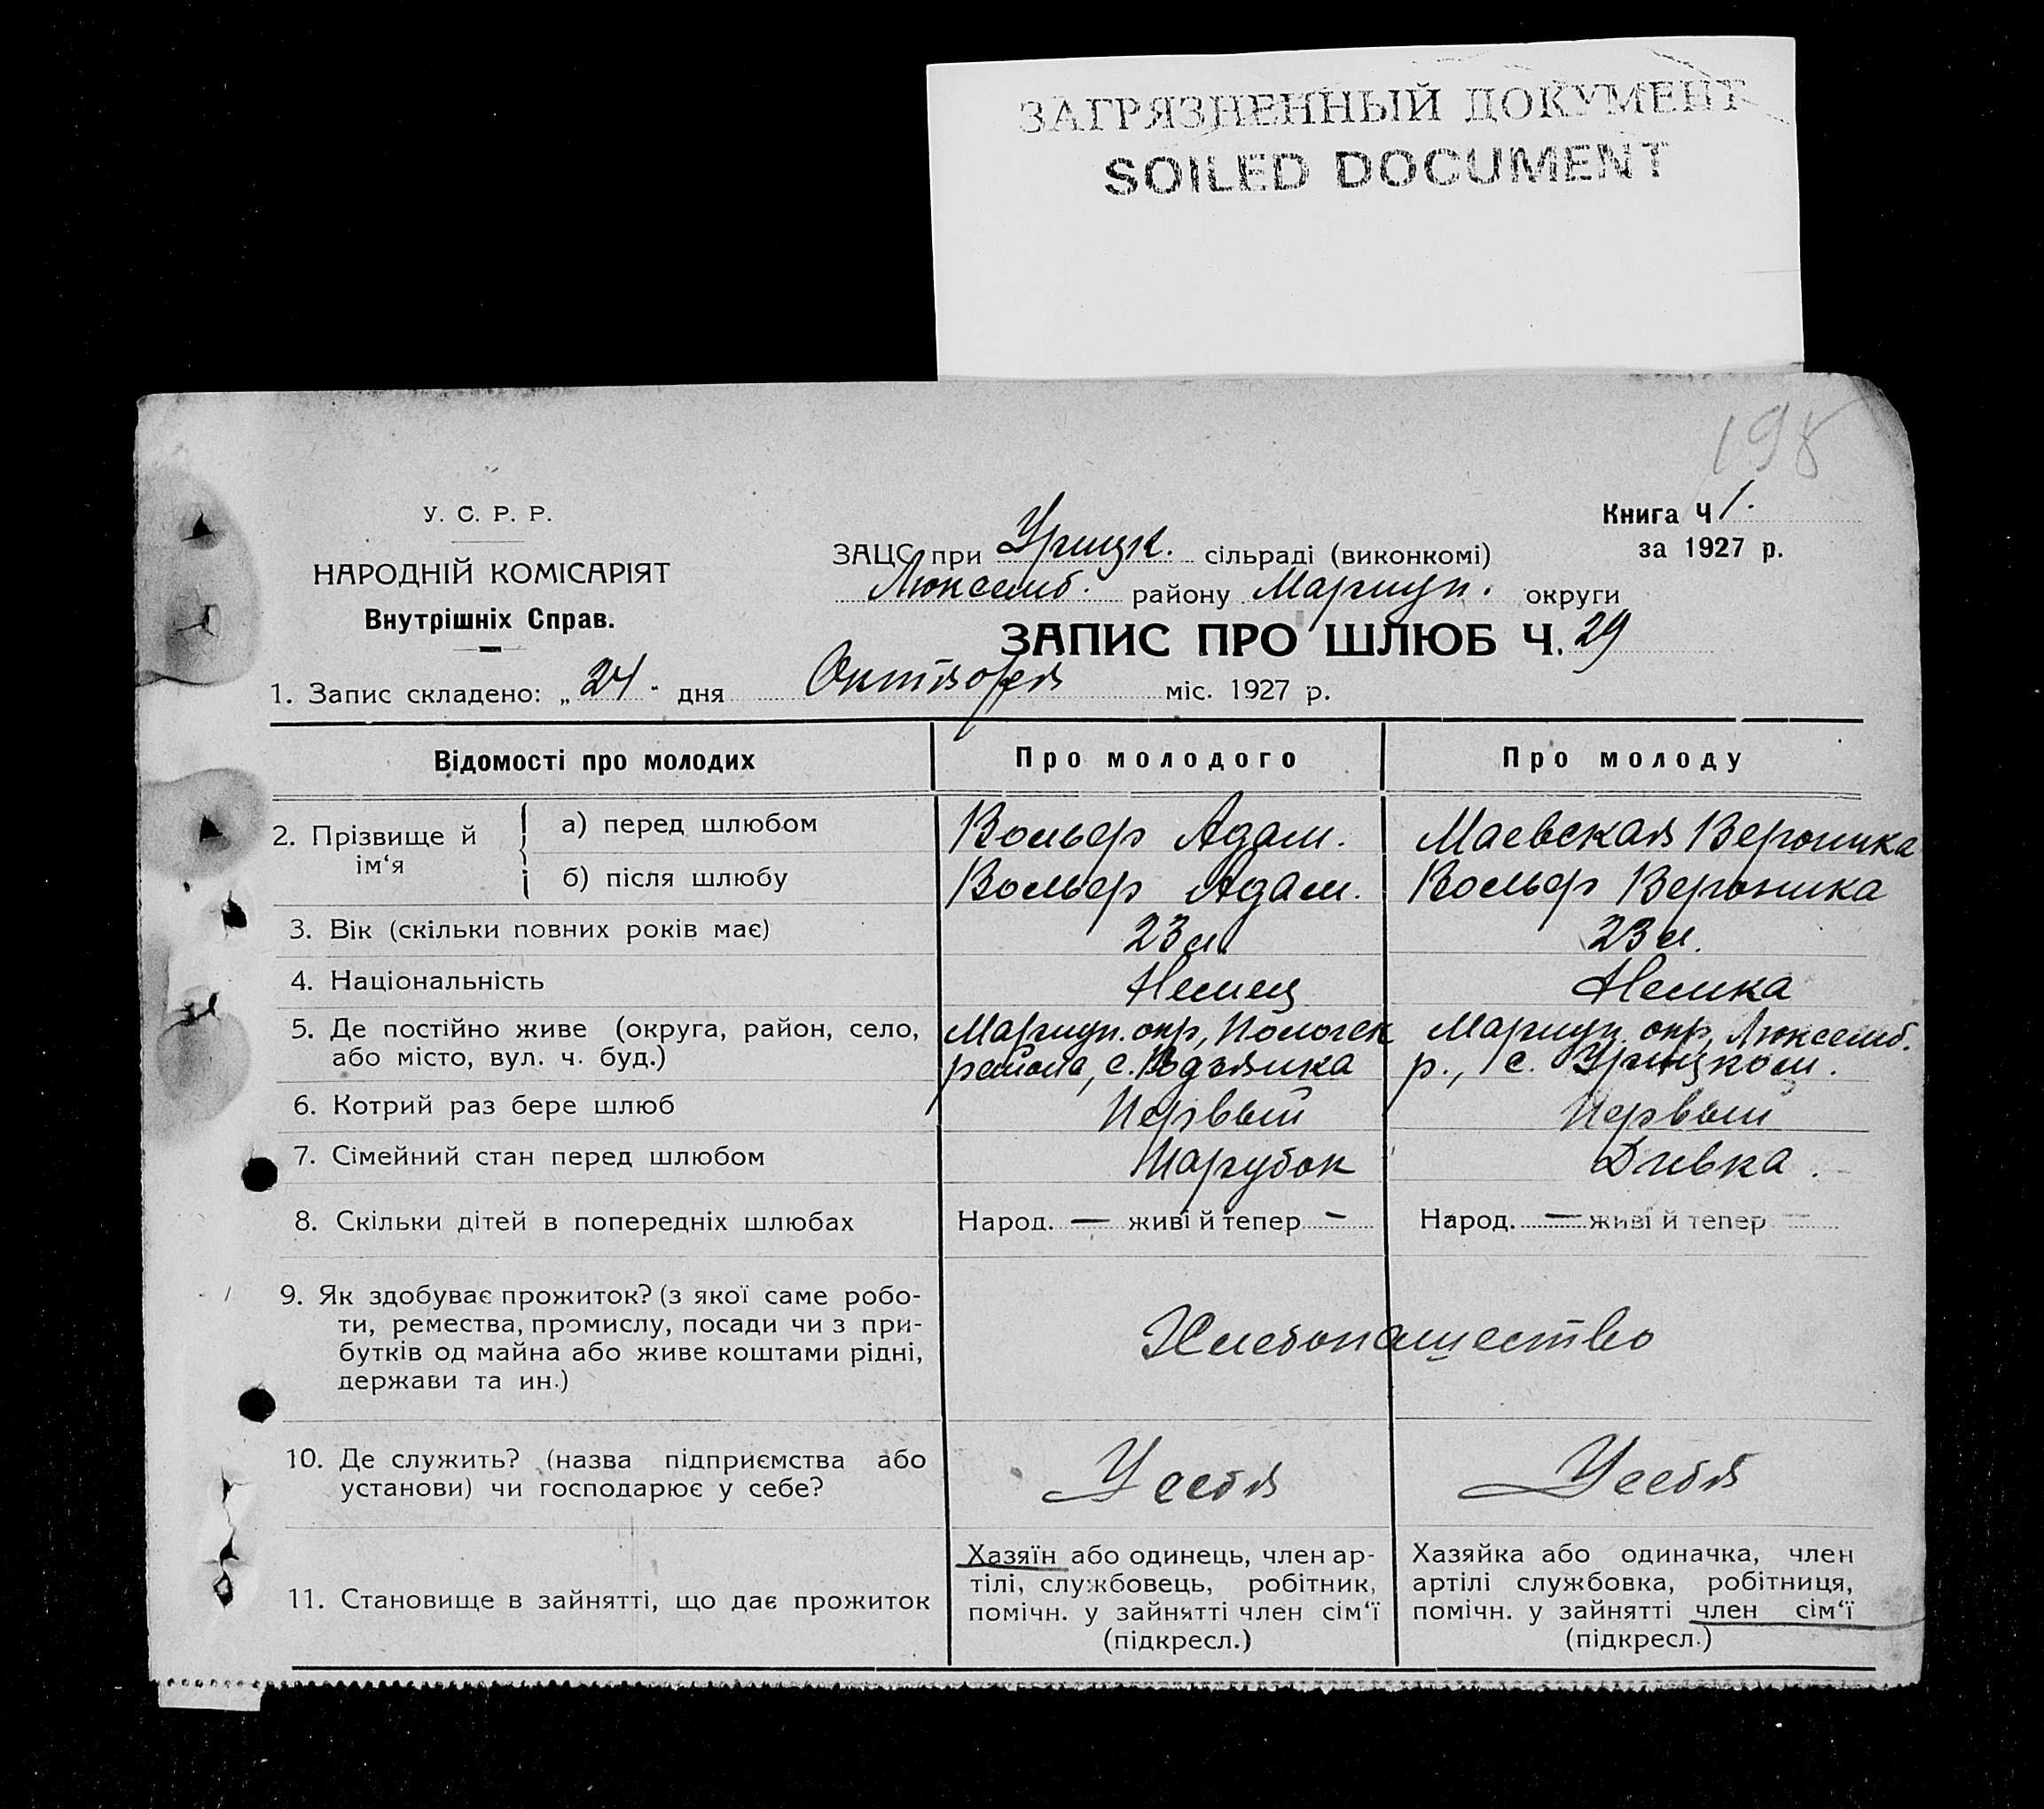 ЗАГРЯЗНЕННЫЙ ДОКУМЕНТ
SOILED DOCUMENT
198
У. С. Р. Р.
НАРОДНІЙ КОМІСАРІЯТ
Внутрішніх Справ.
Книга Ч 1.
за 1927 р.
ЗАЦС при Урицк. сільраді (виконкомі)
Люксемб. району Мариуп. округи
ЗАПИС ПРО ШЛЮБ Ч. 29
1. Запис складено: „24" дня Октября міс. 1927 р.
Відомості про молодих Про молодого Про молоду
2. Прізвище й ім‘я
а) перед шлюбом Вольф Адам. Маевская Вероника
б) після шлюбу Вольф Адам. Вольф Вероника
3. Вік (скільки повних років має) 23 л. 23 л.
4. Національність Немец Немка
5. Де постійно живе (округа, район, село, Мариуп. окр, Пологск Мариуп. окр, Люксемб.
або місто, вул. ч. буд.) района, с. Водяника р., с. Урицком.
6. Котрий раз бере шлюб Первый Первый
7. Сімейний стан перед шлюбом Парубок Дивка.
8. Скільки дітей в попередніх шлюбах Народ. — живі й тепер - Народ. — живі й тепер —
9. Як здобуває прожиток? (з якої саме робо-
ти, ремества, промислу, посади чи з при-
бутків од майна або живе коштами рідні,
держави та ин.)
Хлебопашество
10. Де служить? (назва підприємства або
установи) чи господарює у себе?
У себя У себя
11. Становище в зайнятті, що дає прожиток
Хазяїн або одинець, член ар-
тілі, службовець, робітник,
помічн. у зайнятті член сім‘ї
(підкресл.)
Хазяйка або одиначка, член
артілі службовка, робітниця,
помічн. у зайнятті член сім‘ї
(підкресл.)